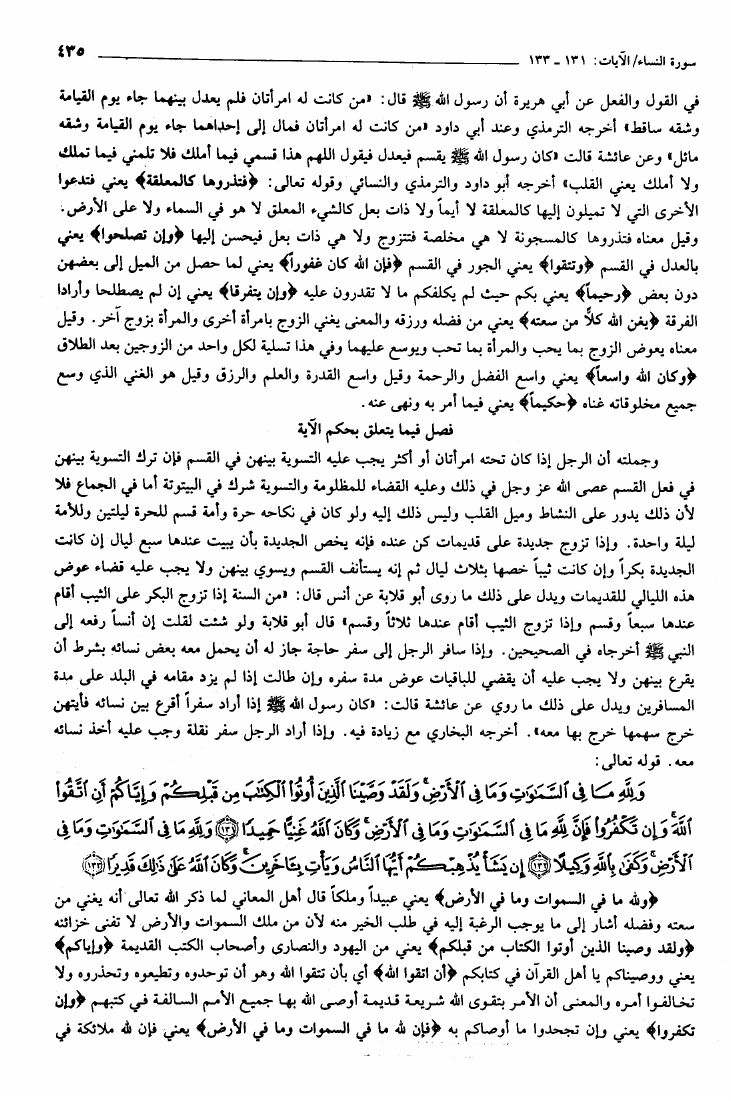 سورة النساء/ الآيات: ١٣١ ـ ١٣٣ ٤٣٥
في القول والفعل عن أبي هريرة أن رسول الله ﷺ قال: «من كانت له امرأتان فلم يعدل بينهما جاء يوم القيامة
وشقه ساقط» أخرجه الترمذي وعند أبي داود «من كانت له امرأتان فمال إلى إحداهما جاء يوم القيامة وشقه
مائل» وعن عائشة قالت «كان رسول الله ﷺ يقسم فيعدل فيقول اللهم هذا قسمي فيما أملك فلا تلمني فيما تملك
ولا أملك يعني القلب» أخرجه أبو داود والترمذي والنسائي وقوله تعالى: ﴿فتذروها كالمعلقة﴾ يعني فتدعوا
الأخرى التي لا تميلون إليها كالمعلقة لا أيماً ولا ذات بعل كالشيء المعلق لا هو في السماء ولا على الأرض.
وقيل معناه فتذروها كالمسجونة لا هي مخلصة فتتزوج ولا هي ذات بعل فيحسن إليها ﴿وإن تصلحوا﴾ يعني
بالعدل في القسم ﴿وتتقوا﴾ يعني الجور في القسم ﴿فإن الله كان غفوراً﴾ يعني لما حصل من الميل إلى بعضهن
دون بعض ﴿رحيماً﴾ يعني بكم حيث لم يكلفكم ما لا تقدرون عليه ﴿وإن يتفرقا﴾ يعني إن لم يصطلحا وأرادا
الفرقة ﴿يغن الله كلاًّ من سعته﴾ يعني من فضله ورزقه والمعنى يغني الزوج بامرأة أخرى والمرأة بزوج آخر. وقيل
معناه يعوض الزوج بما يحب والمرأة بما تحب ويوسع عليهما وفي هذا تسلية لكل واحد من الزوجين بعد الطلاق
﴿وكان الله واسعاً﴾ يعني واسع الفضل والرحمة وقيل واسع القدرة والعلم والرزق وقيل هو الغني الذي وسع
جميع مخلوقاته غناه ﴿حكيماً﴾ يعني فيما أمر به ونهى عنه.
فصل فيما يتعلق بحكم الآية
وجملته أن الرجل إذا كان تحته امرأتان أو أكثر يجب عليه التسوية بينهن في القسم فإن ترك التسوية بينهن
في فعل القسم عصى الله عز وجل في ذلك وعليه القضاء للمظلومة والتسوية شرك في البيتوتة أما في الجماع فلا
لأن ذلك يدور على النشاط وميل القلب وليس ذلك إليه ولو كان في نكاحه حرة وأمة قسم للحرة ليلتين وللأمة
ليلة واحدة. وإذا تزوج جديدة على قديمات كن عنده فإنه يخص الجديدة بأن يبيت عندها سبع ليال إن كانت
الجديدة بكراً وإن كانت ثيباً خصها بثلاث ليال ثم إنه يستأنف القسم ويسوي بينهن ولا يجب عليه قضاء عوض
هذه الليالي للقديمات ويدل على ذلك ما روى أبو قلابة عن أنس قال: «من السنة إذا تزوج البكر على الثيب أقام
عندها سبعاً وقسم وإذا تزوج الثيب أقام عندها ثلاثاً وقسم» قال أبو قلابة ولو شئت لقلت إن أنساً رفعه إلى
النبي ﷺ أخرجاه في الصحيحين. وإذا سافر الرجل إلى سفر حاجة جاز له أن يحمل معه بعض نسائه بشرط أن
يقرع بينهن ولا يجب عليه أن يقضي للباقيات عوض مدة سفره وإن طالت إذا لم يزد مقامه في البلد على مدة
المسافرين ويدل على ذلك ما روي عن عائشة قالت: «كان رسول الله ﷺ إذا أراد سفراً أقرع بين نسائه فأيتهن
خرج سهمها خرج بها معه». أخرجه البخاري مع زيادة فيه. وإذا أراد الرجل سفر نقلة وجب عليه أخذ نسائه
معه. قوله تعالى:
وَلِلَّهِ مَا فِي السَّمَاوَاتِ وَمَا فِي الْأَرْضِ وَلَقَدْ وَصَّيْنَا الَّذِينَ أُوتُوا الْكِتَابَ مِن قَبْلِكُمْ وَإِيَّاكُمْ أَنِ اتَّقُوا
اللَّهَ وَإِن تَكْفُرُوا فَإِنَّ لِلَّهِ مَا فِي السَّمَاوَاتِ وَمَا فِي الْأَرْضِ وَكَانَ اللَّهُ غَنِيًّا حَمِيدًا ﴿١٣١﴾ وَلِلَّهِ مَا فِي السَّمَاوَاتِ وَمَا فِي
الْأَرْضِ وَكَفَىٰ بِاللَّهِ وَكِيلًا ﴿١٣٢﴾ إِن يَشَأْ يُذْهِبْكُمْ أَيُّهَا النَّاسُ وَيَأْتِ بِآخَرِينَ وَكَانَ اللَّهُ عَلَىٰ ذَٰلِكَ قَدِيرًا ﴿١٣٣﴾
﴿ولله ما في السموات وما في الأرض﴾ يعني عبيداً وملكاً قال أهل المعاني لما ذكر الله تعالى أنه يغني من
سعته وفضله أشار إلى ما يوجب الرغبة إليه في طلب الخير منه لأن من ملك السموات والأرض لا تفنى خزائنه
﴿ولقد وصينا الذين أوتوا الكتاب من قبلكم﴾ يعني من اليهود والنصارى وأصحاب الكتب القديمة ﴿وإياكم﴾
يعني ووصيناكم يا أهل القرآن في كتابكم ﴿أن اتقوا الله﴾ أي بأن تتقوا الله وهو أن توحدوه وتطيعوه وتحذروه ولا
تخالفوا أمره والمعنى أن الأمر بتقوى الله شريعة قديمة أوصى الله بها جميع الأمم السالفة في كتبهم ﴿وإن
تكفروا﴾ يعني وإن تجحدوا ما أوصاكم به ﴿فإن لله ما في السموات وما في الأرض﴾ يعني فإن لله ملائكة في